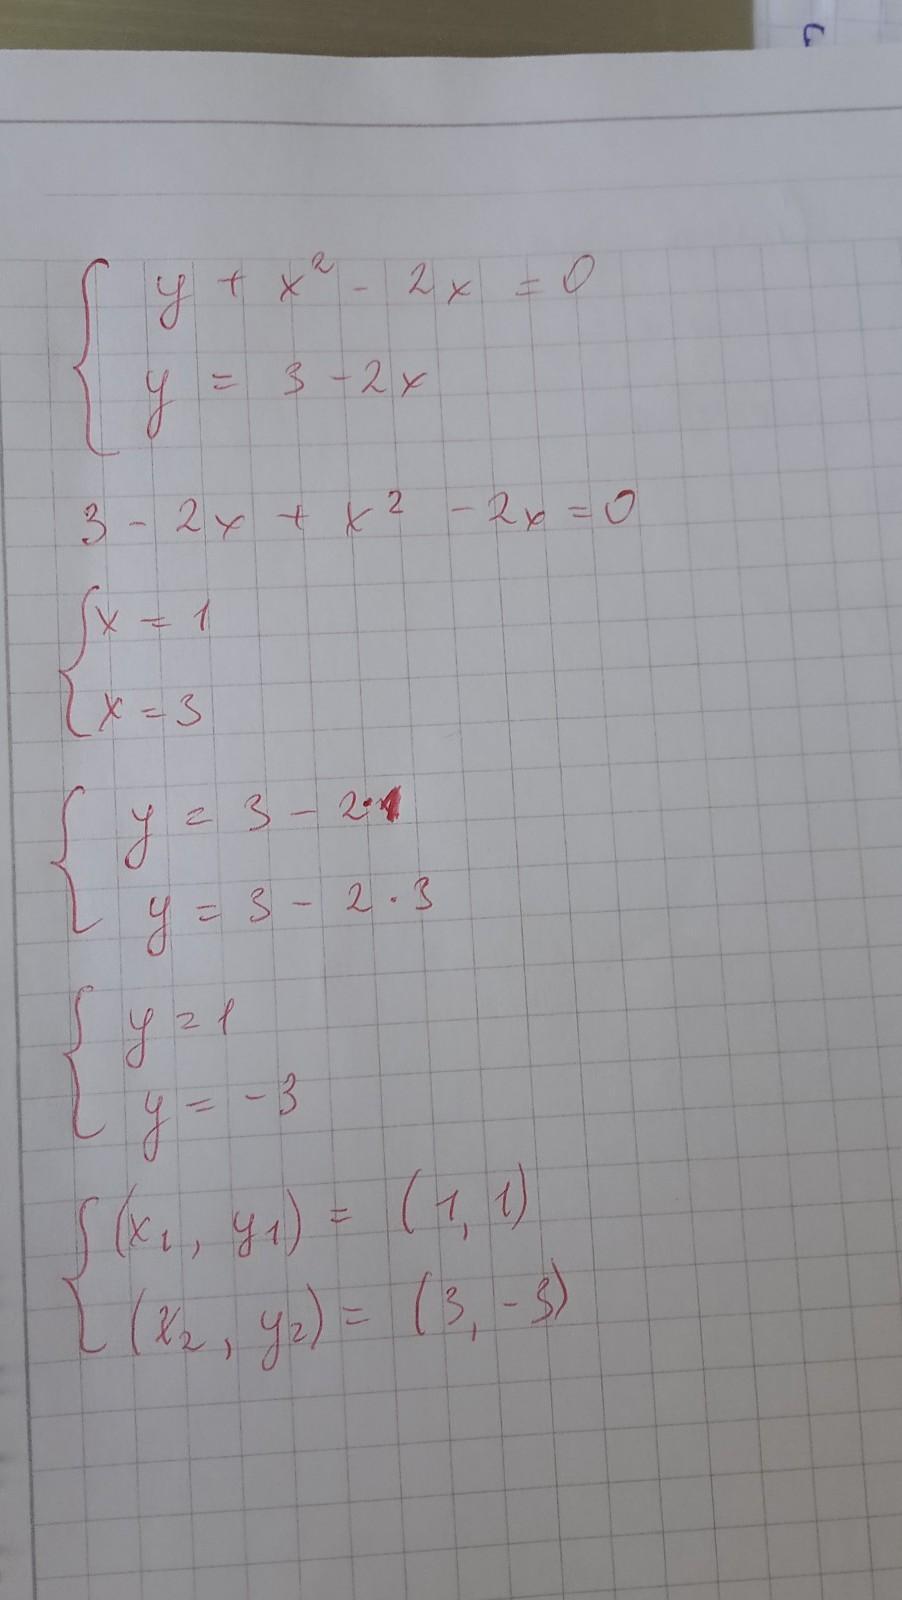 y + x² - 2x = 0
y = 3 - 2x
3 - 2x + x² - 2x = 0
x = 1
x = 3
y = 3 - 2·1
y = 3 - 2·3
y = 1
y = -3
(x₁, y₁) = (1, 1)
(x₂, y₂) = (3, -3)